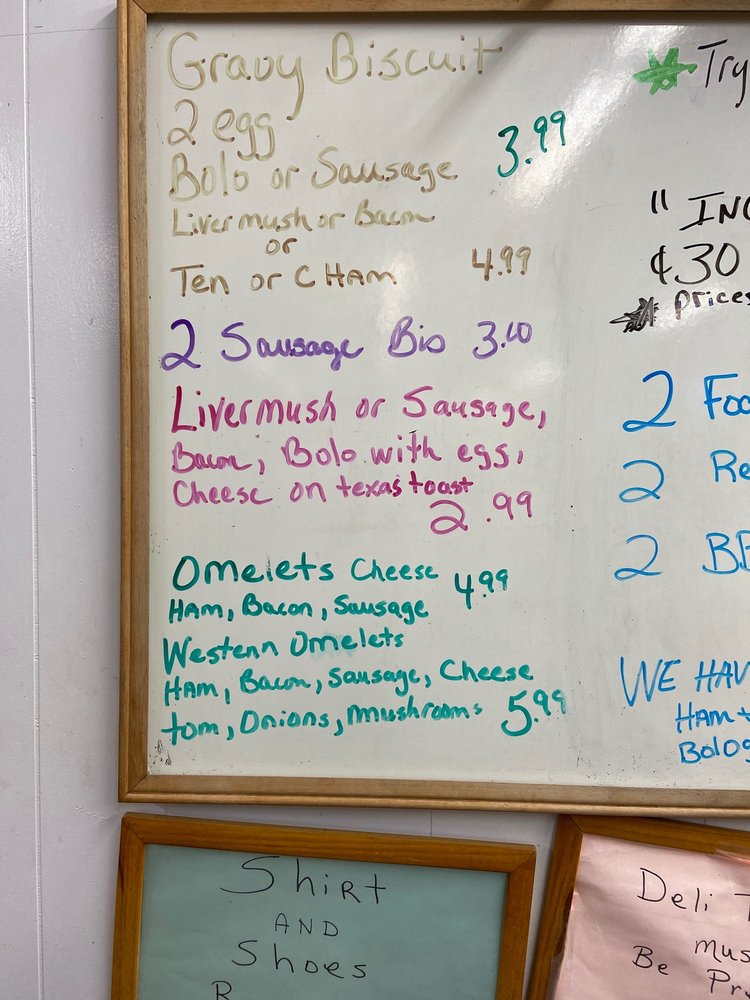 Gravy Biscuit
2 egg
Bolo or Sausage 3.99
Livermush or Bacon
or
Ten or C HAM 4.99
2 Sausage Bis 3.10
Livermush or Sausage,
Bacon, Bolo with egg,
Cheese on texas toast
2.99
Omelets Cheese 4.99
HAM, Bacon, Sausage
Western Omelets
HAM, Bacon, Sausage, Cheese
tom, Onions, mushrooms 5.99
Try
"INC
¢30
prices
2 Foo
2 Re
2 BB
WE HAV
Ham +
Bolog
Shirt
AND
Shoes
R
Deli T
mus
Be Pr